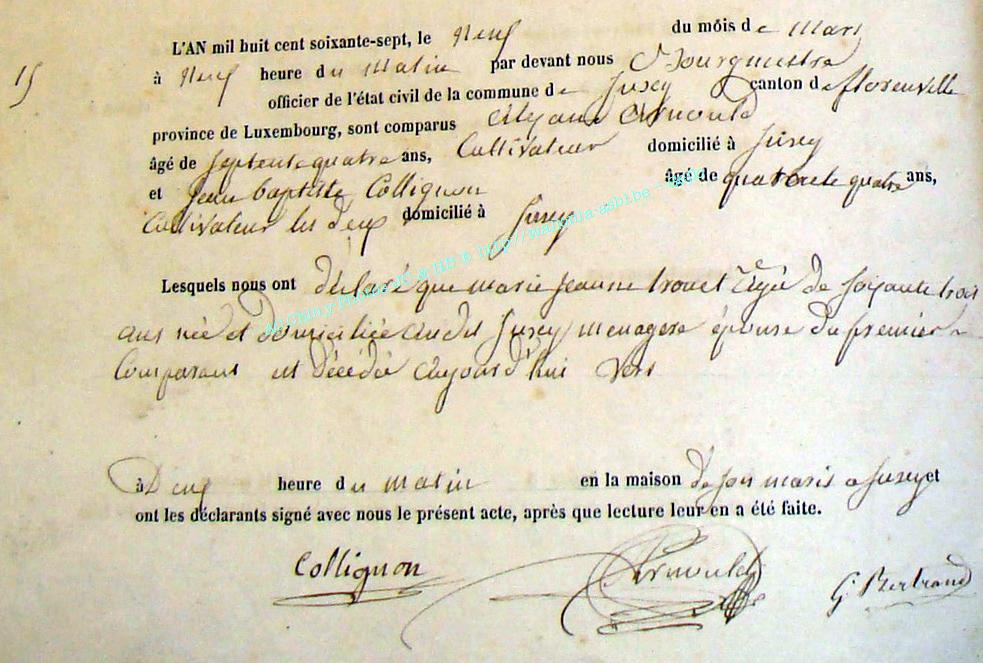 L'AN mil huit cent soixante-sept, le Neuf du mois de Mars
15
à Neuf heure du Matin par devant nous Bourgmestre
officier de l'état civil de la commune de Jusey canton de florenville
province de Luxembourg, sont comparus Arnould
âgé de septente quatre ans, Cultivateur domicilié à Jusey
et Jean baptiste Collignon âgé de quarente quatre ans,
Cultivateur les deux domicilié à Jusey
Lesquels nous ont déclaré que marie Jeanne trouet agée de soixante trois
ans née et domiciliée audit Jusey menagere épouse du premier
Comparant est décédée aujourd'hui vers
à Deux heure du matin en la maison de son maris a Jusey et
ont les déclarants signé avec nous le présent acte, après que lecture leur en a été faite.
Collignon Arnould G Bertrand